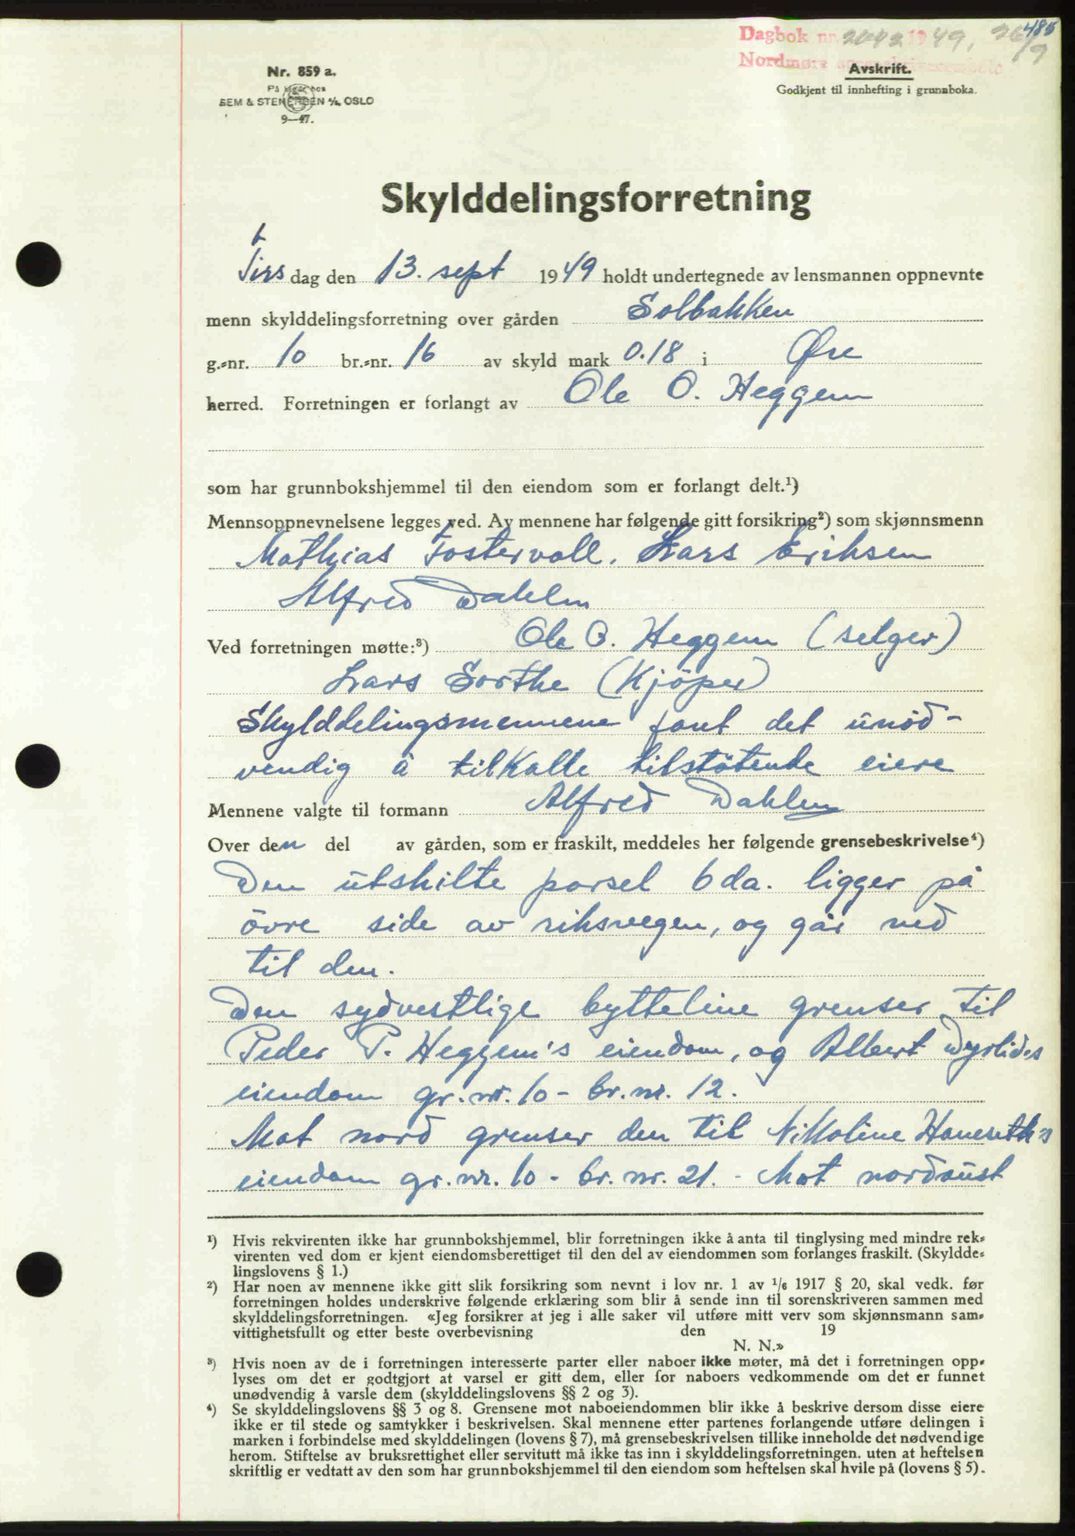 485
Dagbok nr. 2042 1949, 26/9
Nordmøre
Nr. 859 a.
SEM & STENERSEN A/S, OSLO
9—47.
Avskrift.
Godkjent til innhefting i grunnboka.
Skylddelingsforretning
Tirs dag den 13. sept 1949 holdt undertegnede av lensmannen oppnevnte
menn skylddelingsforretning over gården Solbakken
g.-nr. 10 br.-nr. 16 av skyld mark 0.18 i Øre
herred. Forretningen er forlangt av Ole O. Heggem
som har grunnbokshjemmel til den eiendom som er forlangt delt.¹)
Mennsoppnevnelsene legges ved. Av mennene har følgende gitt forsikring²) som skjønnsmenn
Mathias Fostervoll. Lars Eriksen
Alfred Dahlen
Ved forretningen møtte:³) Ole O. Heggem (selger)
Lars Sorthe (Kjöper)
Skylddelingsmennene fant det unöd-
vendig å tilkalle tilstötende eiere
Mennene valgte til formann Alfred Dahlen
Over den del av gården, som er fraskilt, meddeles her følgende grensebeskrivelse⁴)
Den utskilte parsel 6 da. ligger på
övre side av riksvegen, og går ned
til den.
Den sydvestlige bytteline grenser til
Peder P. Heggem's eiendom, og Albert Dyrlids
eiendom gr. nr. 10 - br. nr. 12.
Mot nord grenser den til Nikoline Hanseth's
eiendom gr. nr. 10 - br. nr. 21. - Mot nordaust
¹) Hvis rekvirenten ikke har grunnbokshjemmel, blir forretningen ikke å anta til tinglysing med mindre rek-
virenten ved dom er kjent eiendomsberettiget til den del av eiendommen som forlanges fraskilt. (Skyldde-
lingslovens § 1.)
²) Har noen av mennene ikke gitt slik forsikring som nevnt i lov nr. 1 av 1/6 1917 § 20, skal vedk. før
forretningen holdes underskrive følgende erklæring som blir å sende inn til sorenskriveren sammen med
skylddelingsforretningen. «Jeg forsikrer at jeg i alle saker vil utføre mitt verv som skjønnsmann sam-
vittighetsfullt og etter beste overbevisning den 19
N. N.»
³) Hvis noen av de i forretningen interesserte parter eller naboer ikke møter, må det i forretningen opp-
lyses om det er godtgjort at varsel er gitt dem, eller for naboers vedkommende om det er funnet
unødvendig å varsle dem (skylddelingslovens §§ 2 og 3).
⁴) Se skylddelingslovens §§ 3 og 8. Grensene mot naboeiendommen blir ikke å beskrive dersom disse eiere
ikke er til stede og samtykker i beskrivelsen. Skal mennene etter partenes forlangende utføre delingen i
marken i forbindelse med skylddelingen (lovens § 7), må grensebeskrivelsen tillike inneholde det nødvendige
herom. Stiftelse av bruksrettighet eller servitutt må ikke tas inn i skylddelingsforretningen. uten at heftelsen
skriftlig er vedtatt av den som har grunnbokshjemmel til den eiendom som heftelsen skal hvile på (lovens § 5).